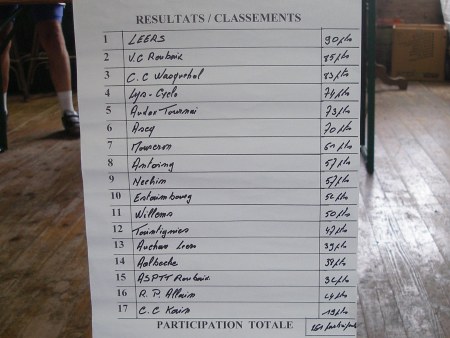 RESULTATS / CLASSEMENTS
1 LEERS 90 pts
2 V.C Roubaix 85 pts
3 C.C Wasquehal 83 pts
4 Lys-Cyclo 74 pts
5 Audax Tournai 73 pts
6 Ascq 70 pts
7 Mouscron 61 pts
8 Antoing 57 pts
9 Nechin 57 pts
10 Estaimbourg
11 Willems 50 pts
12 Tourtignies 47 pts
13 Auchan Leers 39 pts
14 Aalbeche
15 ASPTT Roubaix
16 R.P. Allain 24 pts
17 C.C Kain 19 pts
PARTICIPATION TOTALE